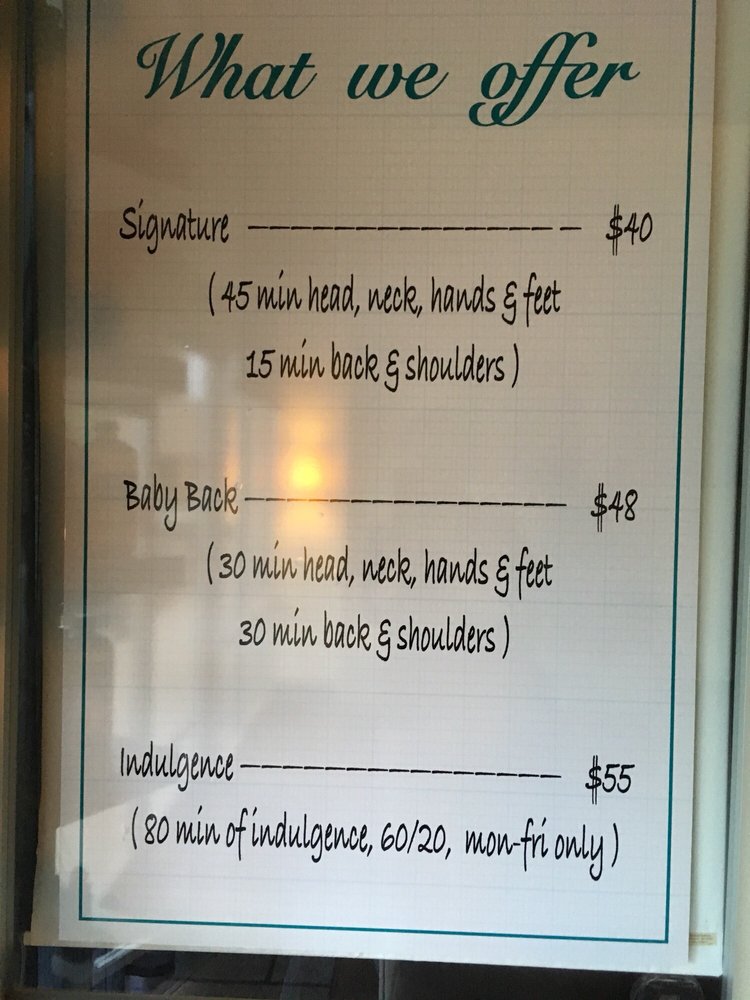 What we offer
Signature --------------- $40
( 45 min head, neck, hands & feet
15 min back & shoulders )
Baby Back --------------- $48
( 30 min head, neck, hands & feet
30 min back & shoulders )
Indulgence --------------- $55
( 80 min of indulgence, 60/20, mon-fri only )